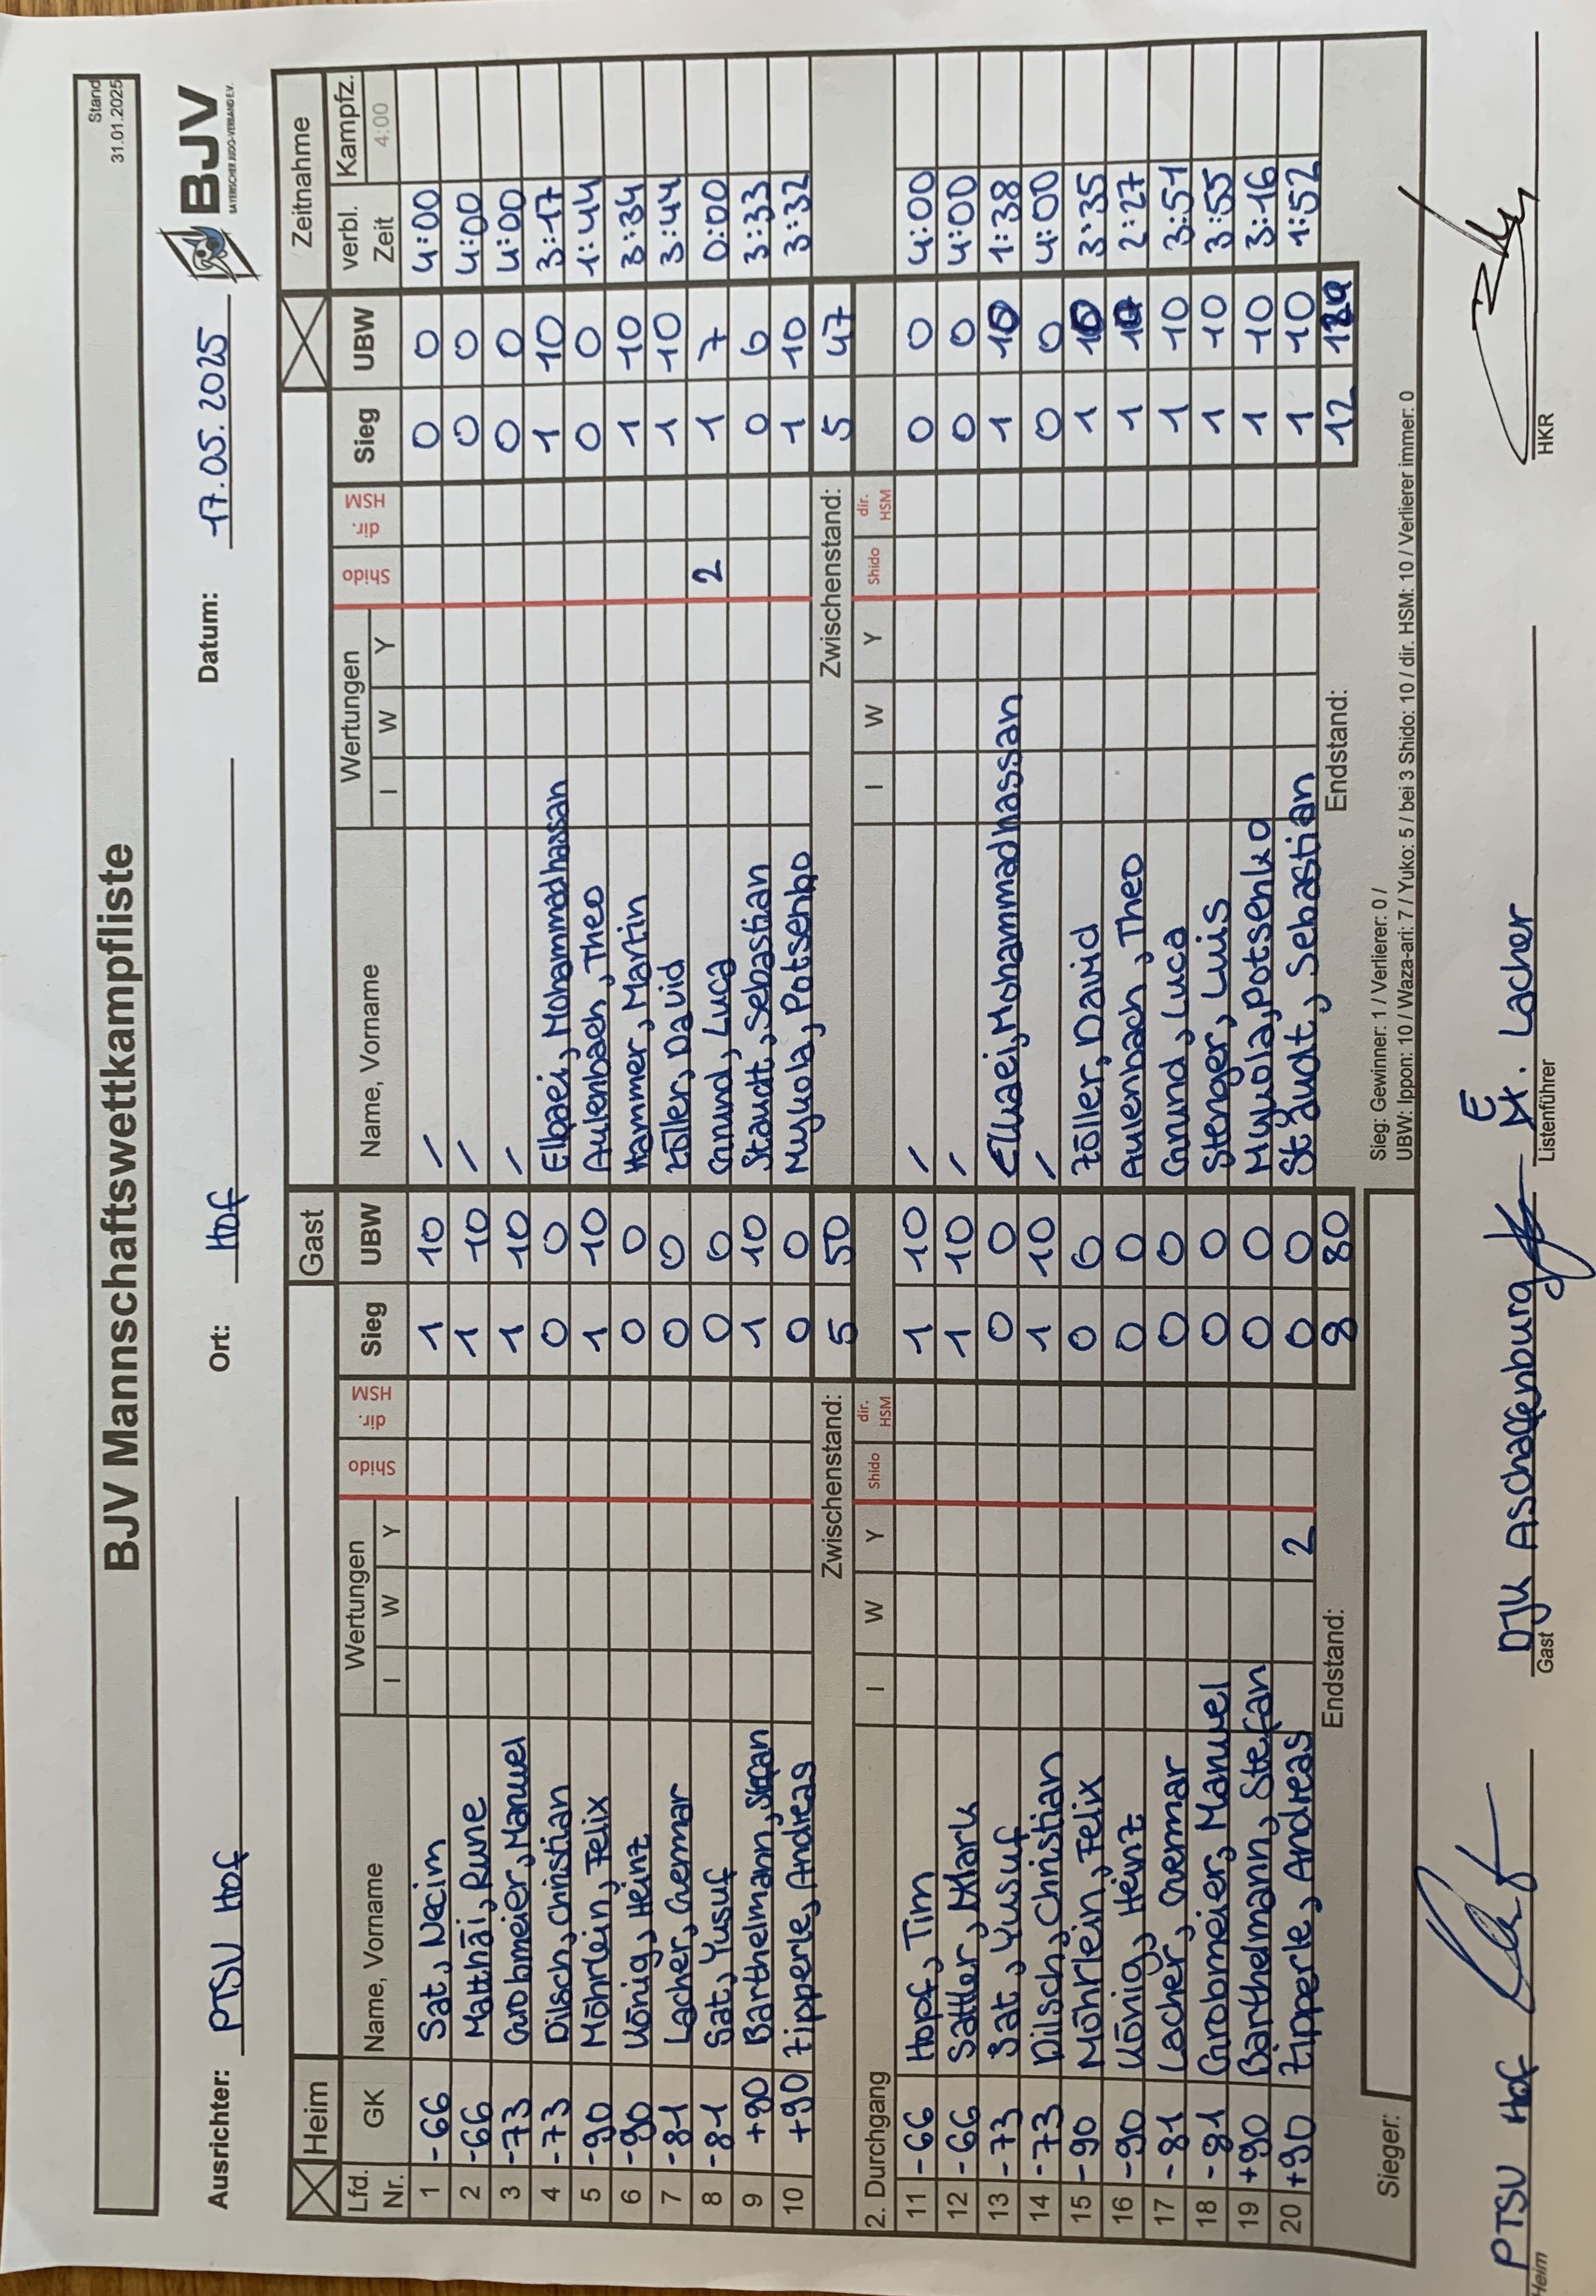 BJV Mannschaftswettkampfliste
Stand
31.01.2025
Ausrichter: PTSV Hof Ort: Hof Datum: 17.05.2025
BJV
BAYERISCHER JUDO-VERBAND E.V.
Heim Gast Zeitnahme
Lfd. Nr. GK Name, Vorname Wertungen I W Y Shido dir. HSM Sieg UBW Name, Vorname Wertungen I W Y Shido dir. HSM Sieg UBW verbl. Zeit Kampfz. 4:00
1 -66 Sat, Necim 1 10 / 0 0 4:00
2 -66 Matthäi, Rune 1 10 / 0 0 4:00
3 -73 Grobmeier, Manuel 1 10 / 0 0 4:00
4 -73 Dilsch, Christian 0 0 Elbaei, Mohammadhassan 1 10 3:17
5 -90 Möhrlein, Felix 1 10 Aulenbach, Theo 0 0 1:44
6 -90 König, Heinz 0 0 Hammer, Martin 1 10 3:34
7 -81 Lacher, Germar 0 0 Zöller, David 1 10 3:44
8 -81 Sat, Yusuf 0 0 Grund, Luca 2 1 7 0:00
9 +90 Barthelmann, Stefan 1 10 Staudt, Sebastian 0 0 3:33
10 +90 Zipperle, Andreas 0 0 Mykola, Potsenko 1 10 3:32
Zwischenstand: 5 50 Zwischenstand: 5 47
2. Durchgang I W Y Shido dir. HSM I W Y Shido dir. HSM
11 -66 Hopf, Tim 1 10 / 0 0 4:00
12 -66 Sattler, Mark 1 10 / 0 0 4:00
13 -73 Sat, Yusuf 0 0 Elkaei, Mohammadhassan 1 10 1:38
14 -73 Dilsch, Christian 1 10 / 0 0 4:00
15 -90 Möhrlein, Felix 0 0 Zöller, David 1 10 3:35
16 -90 König, Heinz 0 0 Aulenbach, Theo 1 10 2:27
17 -81 Lacher, Germar 0 0 Grund, Luca 1 10 3:51
18 -81 Grobmeier, Manuel 0 0 Stenger, Luis 1 10 3:55
19 +90 Barthelmann, Stefan 0 0 Mykola, Potsenko 1 10 3:16
20 +90 Zipperle, Andreas 2 0 0 Staudt, Sebastian 1 10 1:52
Endstand: 8 80 Endstand: 12
Sieger:
Sieg: Gewinner: 1 / Verlierer: 0 /
UBW: Ippon: 10 / Waza-ari: 7 / Yuko: 5 / bei 3 Shido: 10 / dir. HSM: 10 / Verlierer immer: 0
PTSV Hof DJK Aschaffenburg E. Lacher
Heim Gast Listenführer HKR